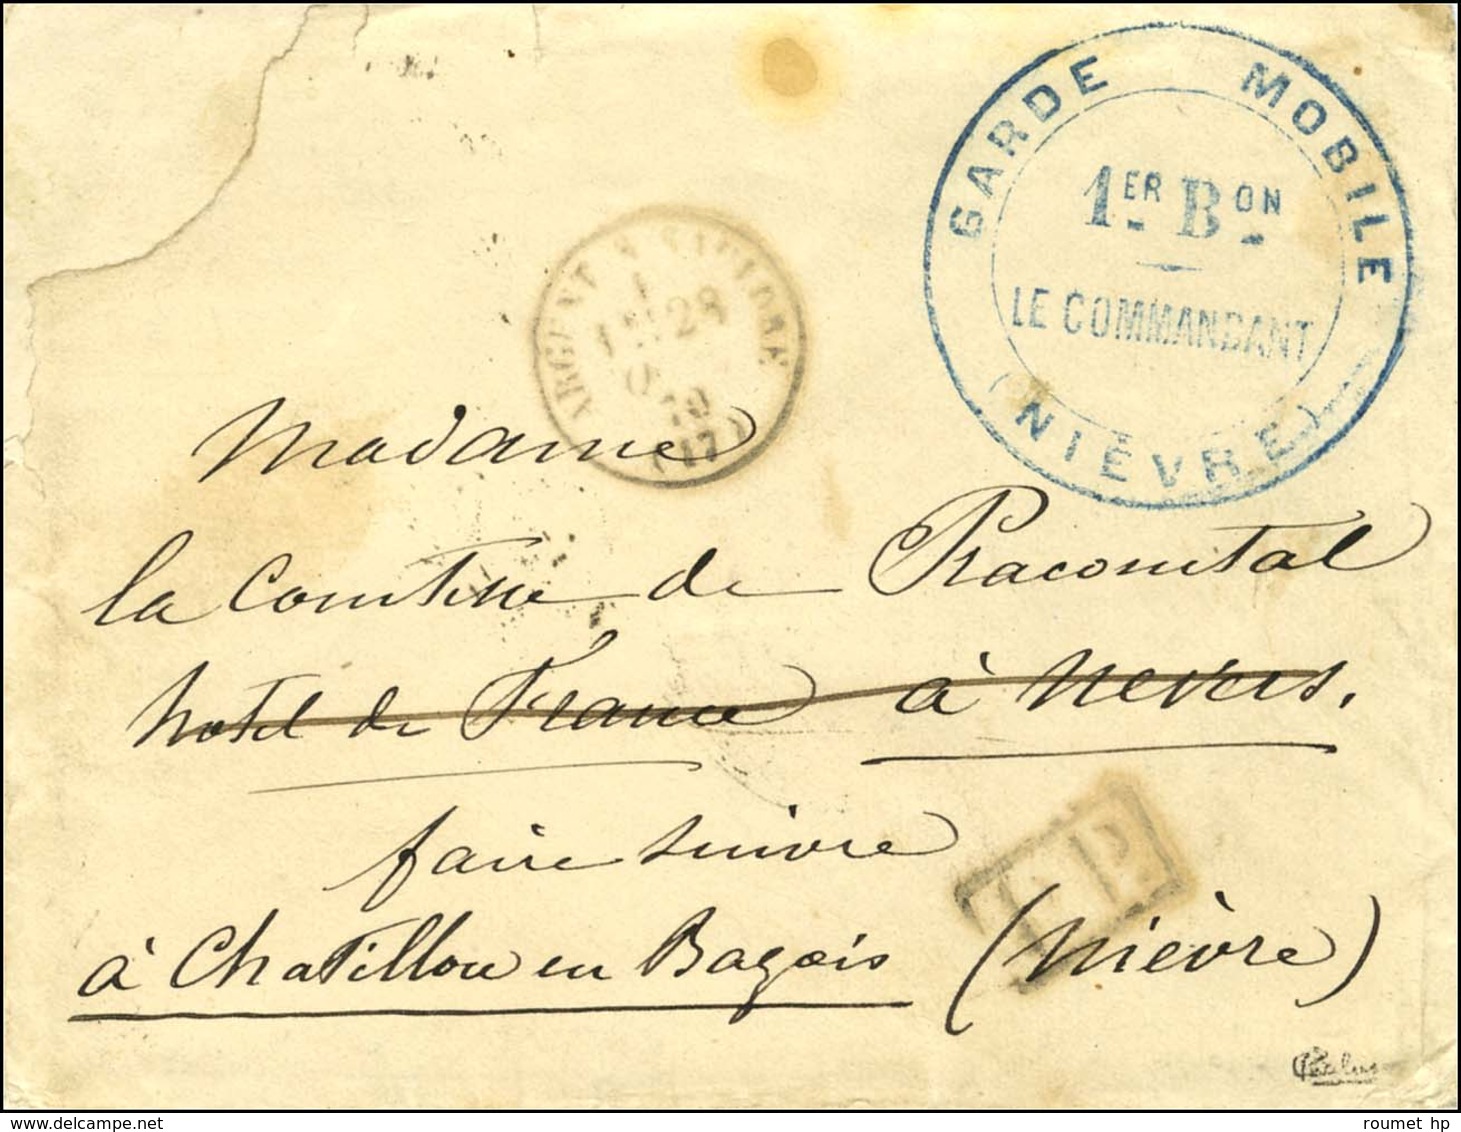 GARDE MOBILE
1ER BON
LE COMMANDANT
(NIÈVRE)
ARGENT S SAULDRE
28
(17)
Madame
la Comtesse de Raconital
hotel de France à Nevers.
faire suivre
à Chatillon en Bazois (Nièvre)
P.P.
roumet hp